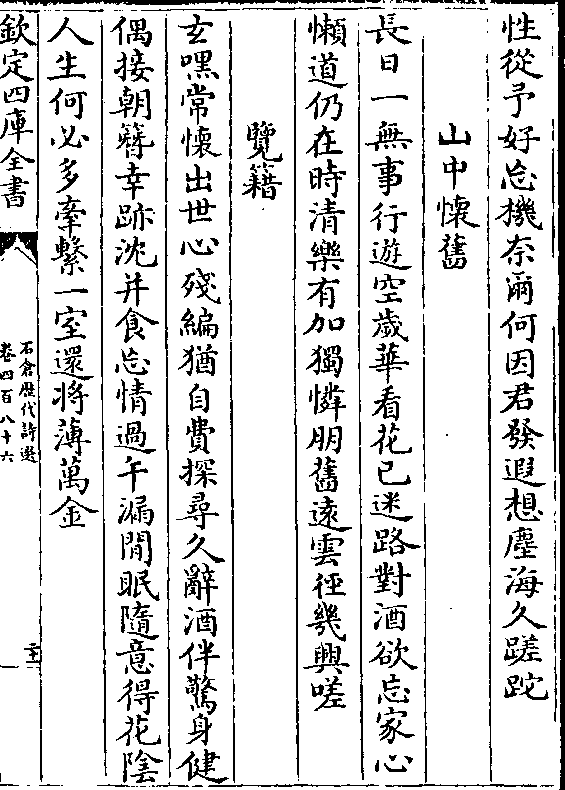 性從予好忘機奈爾何因君發遐想塵海久蹉跎
山中懷舊
長日一無事行遊空歲華看花已迷路對酒欲忘家心
懶道仍在時清樂有加獨憐朋舊遠雲徑幾興嗟
覽籍
玄嘿常懷出世心殘編猶自費探尋久辭酒伴驚身健
偶接朝簪幸跡沈并食忘情過午漏閒眠隨意得花陰
人生何必多牽繫一室還将薄萬金
欽定四庫全書
石倉歴代詩選
卷四百八十六